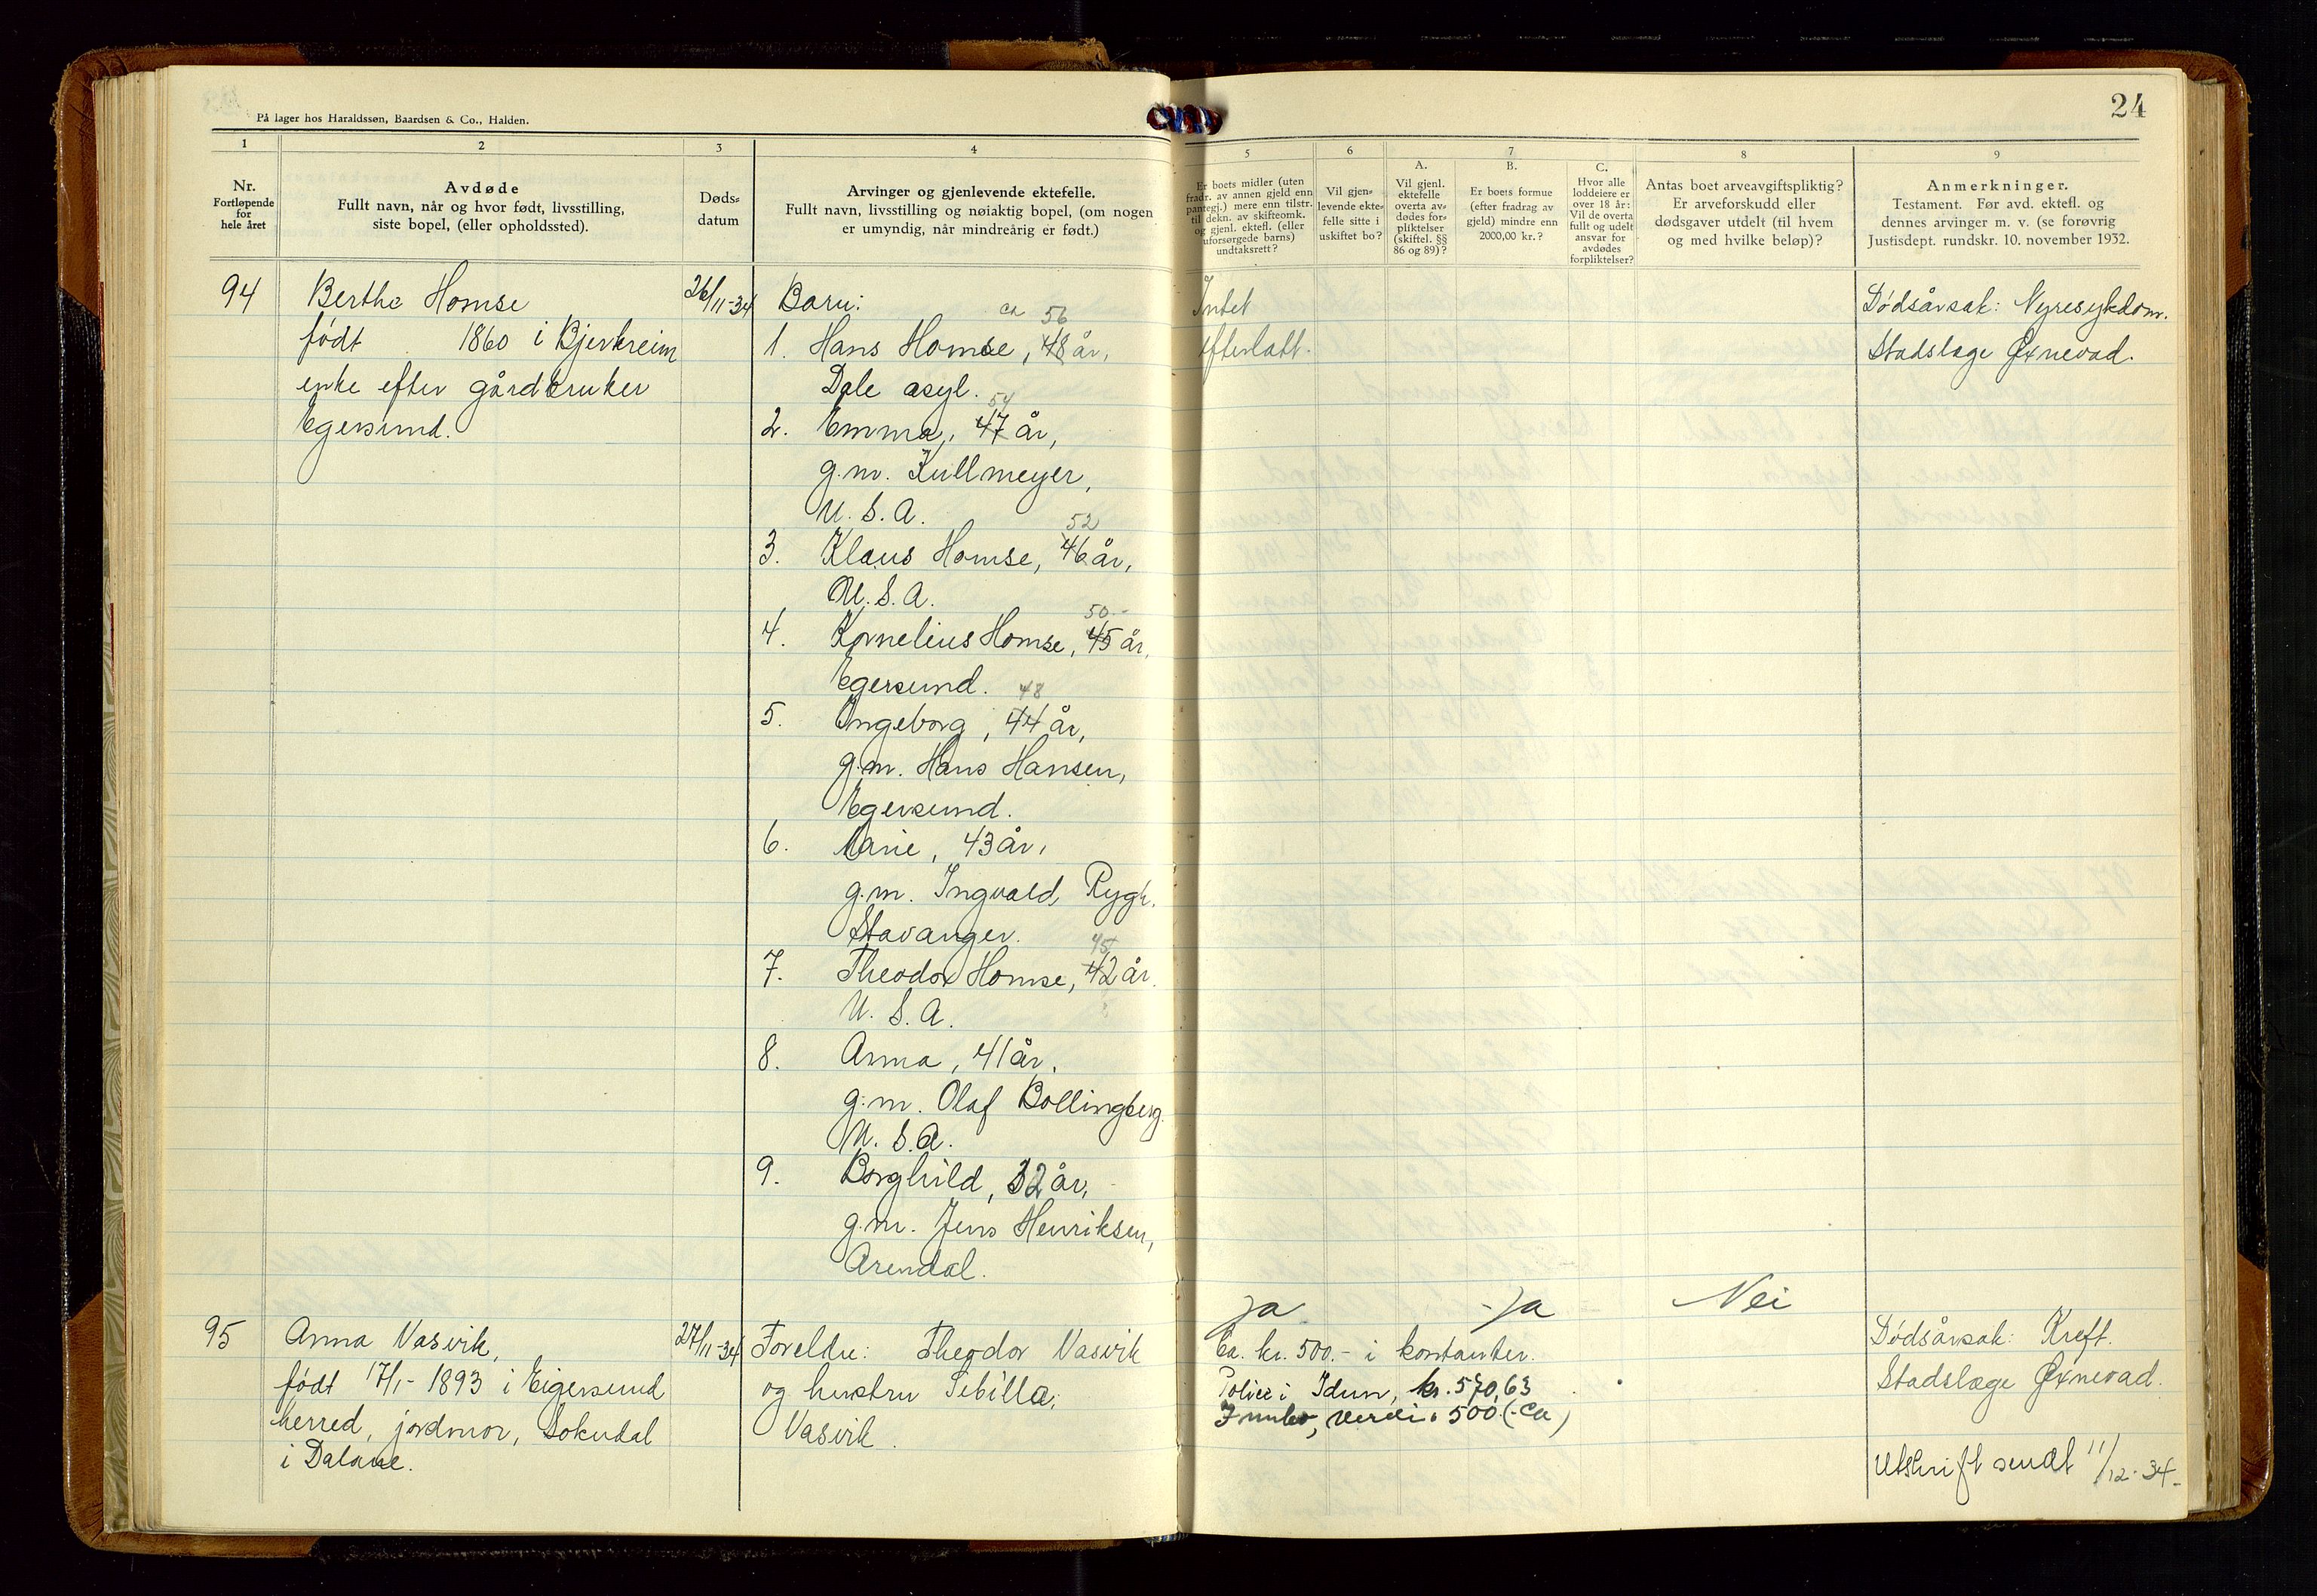 På lager hos Haraldssøn, Baardsen & Co., Halden.
24
1
Nr.
Fortløpende
for
hele året
2
Avdøde
Fullt navn, når og hvor født, livsstilling,
siste bopel, (eller opholdssted).
3
Døds-
datum
4
Arvinger og gjenlevende ektefelle.
Fullt navn, livsstilling og nøiaktig bopel, (om nogen
er umyndig, når mindreårig er født.)
5
Er boets midler (uten
fradr. av annen gjeld enn
pantegj.) mere enn tilstr.
til dekn. av skifteomk.
og gjenl. ektefl. (eller
uforsørgede barns)
undtaksrett?
6
Vil gjen-
levende ekte-
felle sitte i
uskiftet bo?
7
A.
Vil gjenl.
ektefelle
overta av-
dødes for-
pliktelser
(skiftel. §§
86 og 89)?
B.
Er boets formue
(efter fradrag av
gjeld) mindre enn
2000,00 kr.?
C.
Hvor alle
loddeiere er
over 18 år:
Vil de overta
fullt og udelt
ansvar for
avdødes
forpliktelser?
8
Antas boet arveavgiftspliktig?
Er arveforskudd eller
dødsgaver utdelt (til hvem
og med hvilke beløp)?
9
Anmerkninger.
Testament. Før avd. ektefl. og
dennes arvinger m. v. (se forøvrig
Justisdept. rundskr. 10. november 1932.
94
Berthe Homse
født 1860 i Bjerkreim
enke efter gårdbruker
Egersund.
26/11-34
Barn:
ca 56
1. Hans Homse, 48 år,
Dale asyl.
54
2. Emma, 47 år,
g.m. Kullmeyer,
U.S.A.
52
3. Klaus Homse, 46 år,
U.S.A.
50
4. Kornelius Homse, 45 år,
Egersund.
48
5. Ingeborg, 44 år,
g.m. Hans Hansen,
Egersund.
6. Marie, 43 år,
g.m. Ingvald Rygh.
Stavanger.
45
7. Theodor Homse, 42 år.
U.S.A.
8. Anna, 41 år,
g.m. Olaf Bollingberg.
U.S.A.
9. Borghild, 32 år,
g.m. Jens Henriksen,
Arendal.
Intet
efterlatt.
Dødsårsak: Nyresykdom.
Stadslæge Øxnevad.
95
Anna Vasvik,
født 17/1-1893 i Eigersund
herred, jordmor, Sokndal
i Dalane.
27/11-34
Foreldre: Theodor Vasvik
og hustru Sibilla,
Vasvik.
Ja
Ca. kr. 500.- i kontanter.
Police i Idun, kr. 570,63
Innbo, verdi . 500 (-ca)
-Ja
Nei
Dødsårsak: Kreft.
Stadslæge Øxnevad.
Utskrift sendt 11/12-34-